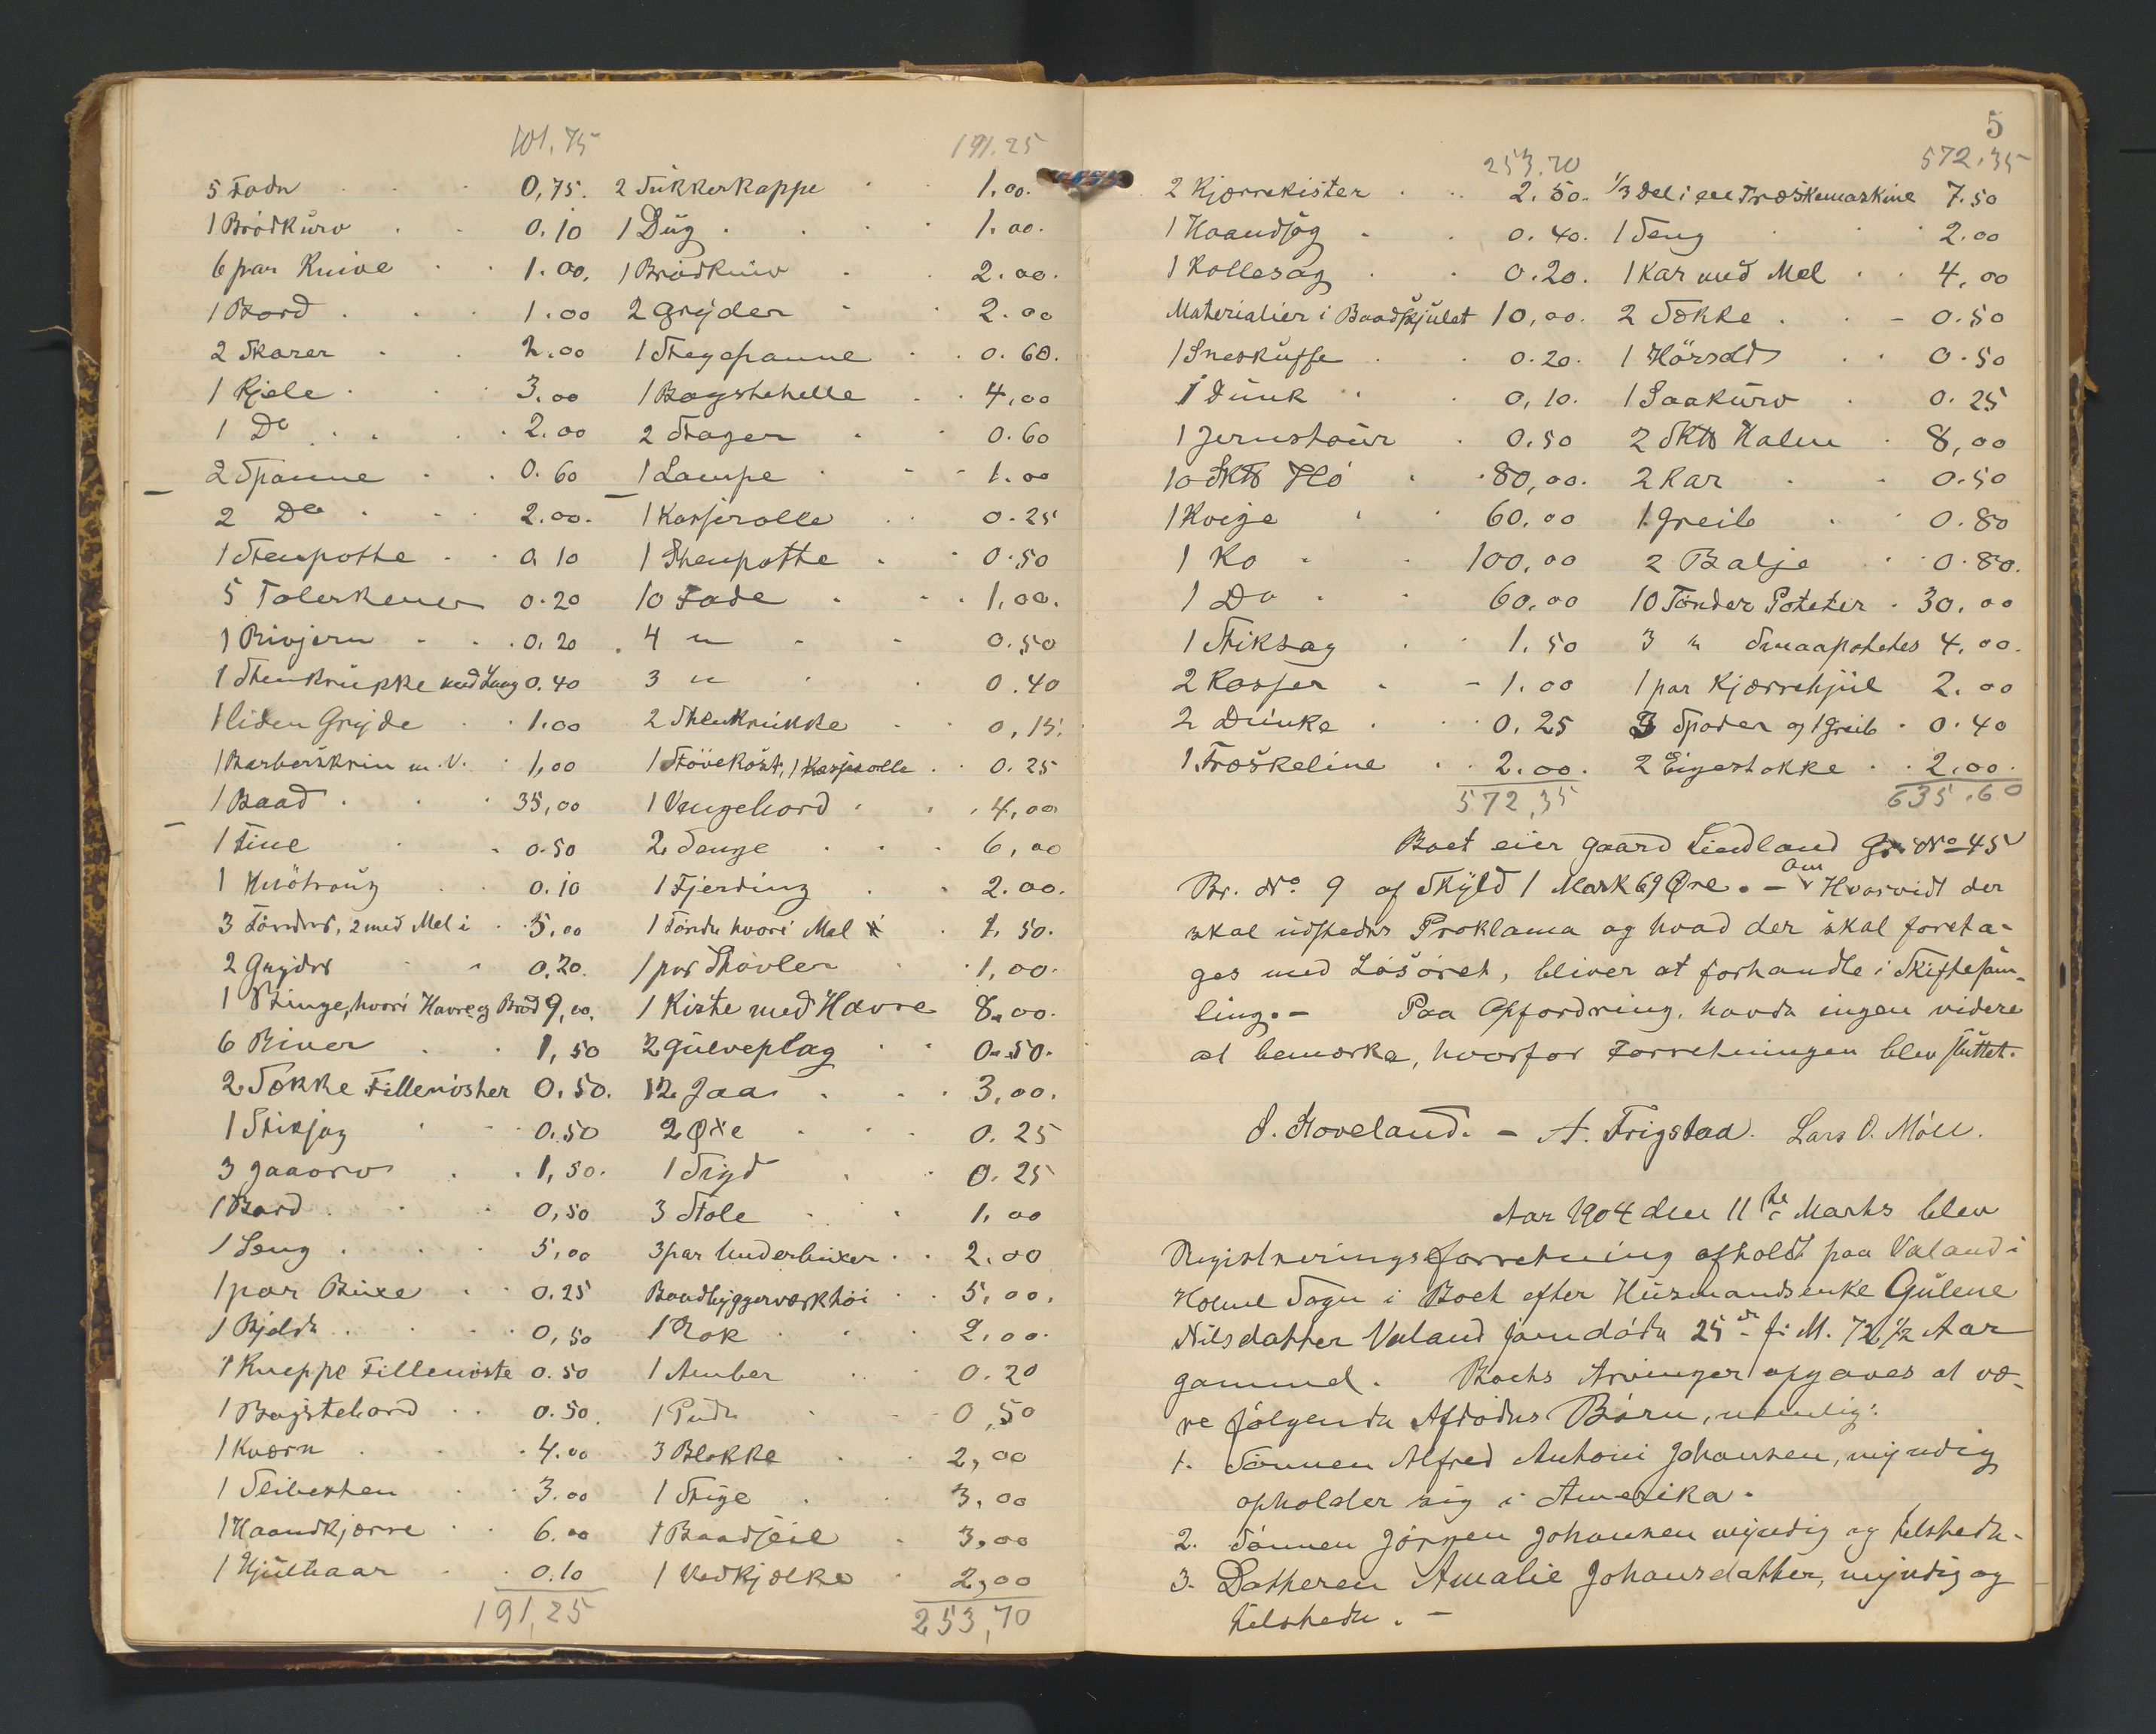 101.75
5 Fade 0,75.
1 Brödkurv 0.10
6 par Knive 1.00.
1 Bord 1.00
2 Skarer 2.00
1 Kjele 3.00
1 Do 2.00
2 Spanne 0.60
2 Do 2.00.
1 Stenpotte 0.10
5 Talerkener 0.20
1 Rivjern 0.20
1 Stenkrukke med Laag 0.40
1 liden Gryde 1.00
1 Barberskrin m.V. 1,00
1 Baad 35,00
1 Tine 0.50
1 Knötraug 0.10
3 Tönder, 2 med Mel i 5,00
2 Gryder 0,20.
1 Binge, hvori Havre og Brød 9,00.
6 River 1,50
2 Sekke Filleristher 0.50.
1 Stiksag 0.50
3 Jaaorv 1,50.
1 Bord 0,50
1 Seng 5,00
1 par Buxe 0.25
1 Bjelde 0,50
1 Kneppe Filleriste 0.50
1 Bagstebord 0.50.
1 Kværn 4.00
1 Slibesten 3.00
1 Haandkjærre 6.00
1 Hjulbaar 0.10
191,25
191.25
2 Sukkerkoppe 1.00.
1 Dug 1.00.
1 Brödkniv 2.00.
2 Gryder 2.00
1 Stegepanne 0.60.
1 Bagstehelle 4,00
2 Stager 0.60
1 Lampe 1.00
1 Kasserolle 0.25
1 Stenpotte 0.50
10 Fade 1,00.
4 " 0.50
3 " 0.40
2 Stenkrukke 0,15.
1 Stövekost, 1 Kasserolle 0.25
1 Vengebord 4,00
2 Senge 6,00
1 Fjerding 2.00.
1 Tönde hvori Mel 1.50.
1 par Stövler 1,00.
1 Kiste med Havre 8.00.
2 Gulveplag 0.50.
12 Jaa 3,00.
2 Øxe 0.25
1 Sigd 0.25
3 Stole 1,00
3 par Underbuxer 2.00
Baadbyggerværktöi 5,00.
1 Rok 2,00.
1 Amber 0.20
1 Pude 0,50
3 Blokke 2,00
1 Stige 3,00
1 Baadseil 3,00
1 Vedkjælke 2,00
253,70
5
253.70
2 Kjærrekister 2.50.
1 Haandsag 0.40.
1 Rollesag 0.20.
Materialier i Baadskjulet 10,00.
1 Sneskuffe 0.20.
1 Dunk 0,10.
1 Jernstaur 0.50
10 Sktt Hö 80,00.
1 Kvige 60.00
1 Ko 100,00
1 Do 60,00
1 Stiksag 1.50
2 Kasser 1.00
2 Dunke 0.25
1 Træskeline 2.00.
572,35
572.35
1/3 Del i een Træskemaskine 7.50
1 Seng 2.00
1 Kar med Mel 4,00
2 Sække 0.50
1 Hörsold 0.50
1 Saakurv 0.25
2 Sktt Halm 8,00
2 Kar 0.50
1 Greib 0.80
2 Balje 0.80.
10 Tönder Poteter 30.00
3 " Smaapoteter 4.00.
1 par Kjærrehjul 2.00
3 Spader og 1 Greib 0.40
2 Eigestokke 2,00.
635.60
Boet eier Gaard Lindland Gr. No 45
Br. No 9 af Skyld 1 Mark 69 Øre. - Om Hvorvidt der
skal udstedes Proklama og hvad der skal foreta-
ges med Lösöret, bliver at forhandle i Skiftesam-
ling. - Paa Opfordring, havde ingen videre
at bemærke, hvorfor Forretningen blev sluttet.
S. Hoveland. - A. Frigstad. Lars O. Möll.
Aar 1904 den 11te Marts blev
Registreringsforretning afholdt paa Valand i
Holme Sogn i Boet efter Husmandsenke Gulene
Nilsdatter Valand som döde 25de f.M. 72 1/2 Aar
gammel. Boets Arvinger opgaves at væ-
re fölgende Afdödes Börn, nemlig:
1. Sönnen Alfred Antoni Johansen, myndig
opholder sig i Amerika.
2. Sönnen Jörgen Johansen myndig og tilstede.
3. Datteren Amalie Johansdatter, myndig og
tilstede. -